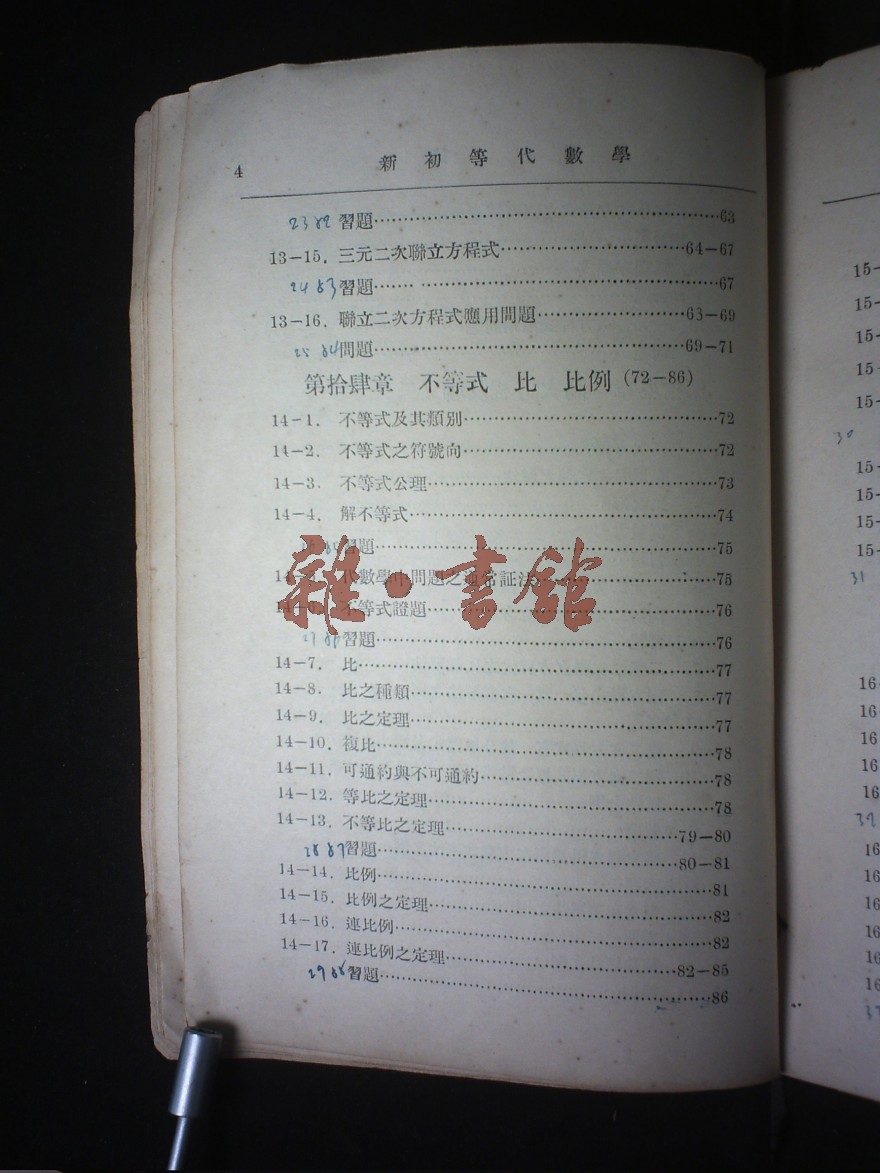 4 新初等代數學
23 82 習題…63
13-15. 三元二次聯立方程式…64-67
24 83 習題…67
13-16. 聯立二次方程式應用問題…63-69
25 84 問題…69-71
第拾肆章 不等式 比 比例 (72-86)
14-1. 不等式及其類別…72
14-2. 不等式之符號向…72
14-3. 不等式公理…73
14-4. 解不等式…74
習題…75
代數學中問題之通常証法…75
不等式證題…76
習題…76
14-7. 比…77
14-8. 比之種類…77
14-9. 比之定理…77
14-10. 複比…78
14-11. 可通約與不可通約…78
14-12. 等比之定理…78
14-13. 不等比之定理…79-80
28 87 習題…80-81
14-14. 比例…81
14-15. 比例之定理…82
14-16. 連比例…82
14-17. 連比例之定理…82-85
29 88 習題…86
雜·書館
15-
15-
15-
15-
15-
30
15-
15-
15-
15-
31
16-
16-
16
16
16
32
16
16
16
16
16
16